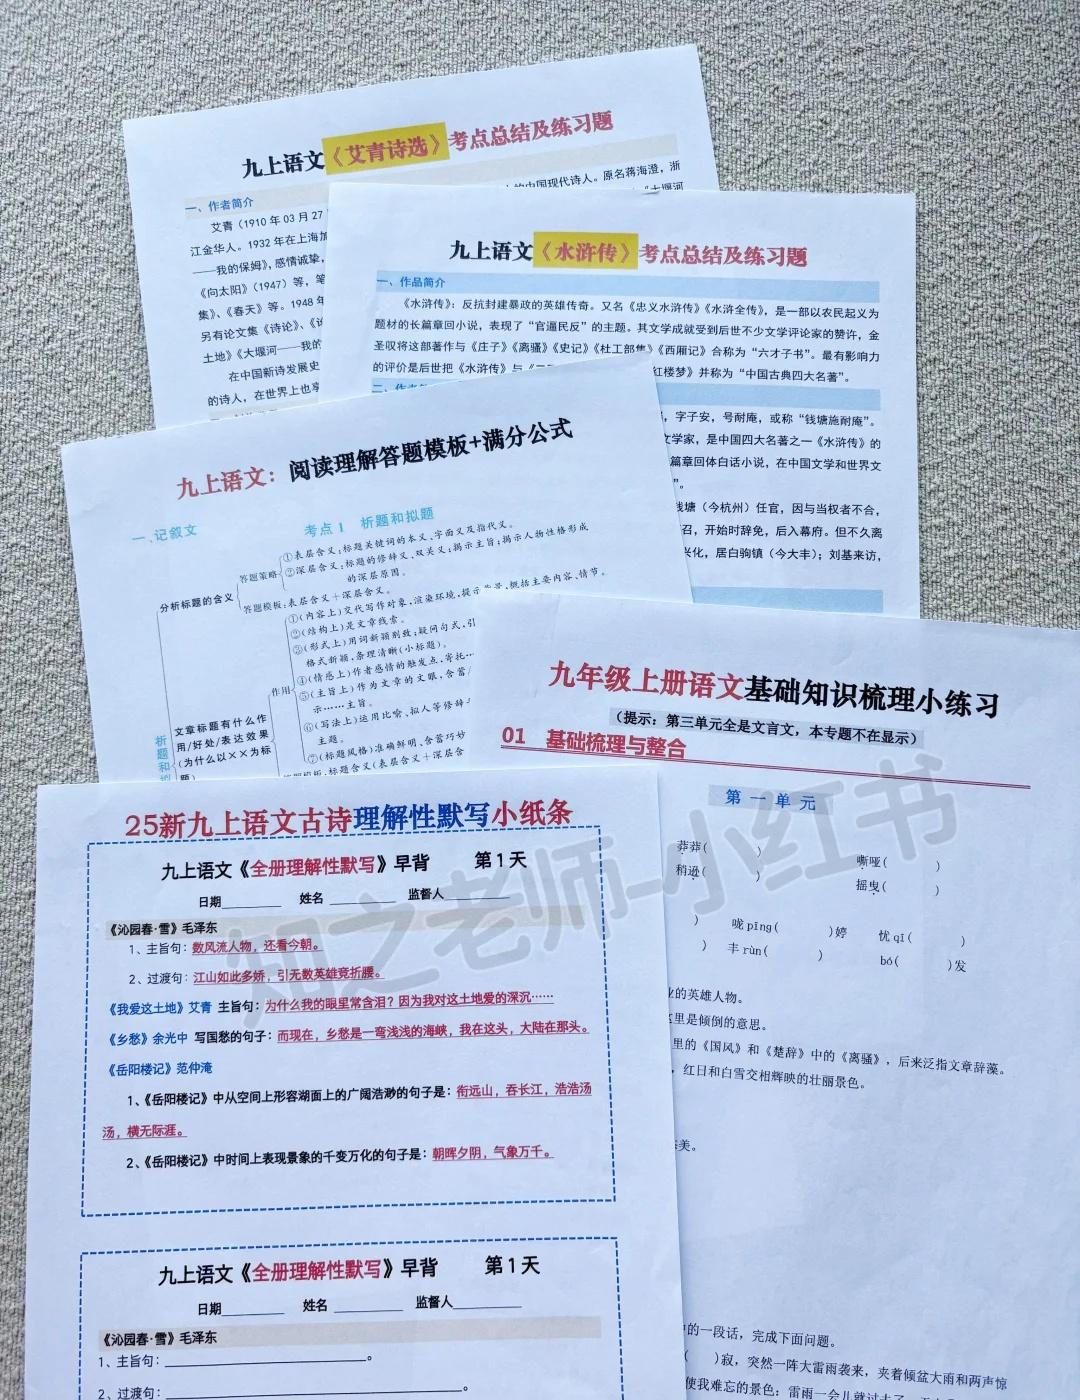 九上语文《艾青诗选》考点总结及练习题
一、作者简介
艾青（1910 年 03 月 27
的中国现代诗人。原名蒋海澄，浙
江金华人。1932 年在上海加
《大堰河
——我的保姆》，感情诚挚，
《向太阳》（1947）等，笔
集》、《春天》等。1948 年
另有论文集《诗论》、《论
土地》《大堰河——我的
在中国新诗发展史
的诗人，在世界上也享
九上语文《水浒传》考点总结及练习题
一、作品简介
《水浒传》：反抗封建暴政的英雄传奇。又名《忠义水浒传》《水浒全传》，是一部以农民起义为
题材的长篇章回小说，表现了“官逼民反”的主题。其文学成就受到后世不少文学评论家的赞许，金
圣叹将这部著作与《庄子》《离骚》《史记》《杜工部集》《西厢记》合称为“六才子书”。最有影响力
的评价是后世把《水浒传》与
红楼梦》并称为“中国古典四大名著”。
二、作者
，字子安，号耐庵，或称“钱塘施耐庵”。
文学家，是中国四大名著之一《水浒传》的
篇章回体白话小说，在中国文学和世界文
”。
钱塘（今杭州）任官，因与当权者不合，
召，开始时辞免，后入幕府。但不久离
兴化，居白驹镇（今大丰）；刘基来访，
九上语文：阅读理解答题模板+满分公式
一、记叙文
考点 1 析题和拟题
分析标题的含义
答题策略
①表层含义：标题关键词的本义、字面义及指代义。
②深层含义：标题的修辞义、双关义；揭示主旨；揭示人物性格形成
的深层原因。
答题模板：表层含义＋深层含义。
析题和拟
文章标题有什么作
用/好处/表达效果
(为什么以××为标
题)
作用
①(内容上)交代写作对象，渲染环境，提示背景，概括主要内容、情节。
②(结构上)是文章线索。
③(形式上)用词新颖别致；疑问句式，引
格式新颖，条理清晰(小标题)。
④(情感上)作者感情的触发点，寄托…
⑤(主旨上)作为文章的文眼，含蓄/
示……主旨。
⑥(写法上)运用比喻、拟人等修辞
主题。
⑦(标题风格)准确鲜明、含蓄巧妙
答题模板：标题含义(表层含义＋深层含
九年级上册语文基础知识梳理小练习
（提示：第三单元全是文言文，本专题不在显示）
01 基础梳理与整合
第一单元
莽莽( ) 嘶哑( )
稍逊( ) 摇曳( )
) 咙 pīng( )婷 忧 qī( )
) 丰 rùn( ) bó( )发
业的英雄人物。
这里是倾倒的意思。
里的《国风》和《楚辞》中的《离骚》，后来泛指文章辞藻。
，红日和白雪交相辉映的壮丽景色。
美。
中的一段话，完成下面问题。
( )寂，突然一阵大雷雨袭来，夹着倾盆大雨和两声惊
使我难忘的景色：雷雨一会儿就过去了
25新九上语文古诗理解性默写小纸条
九上语文《全册理解性默写》早背 第1天
日期________ 姓名________ 监督人________
《沁园春·雪》毛泽东
1、主旨句：数风流人物，还看今朝。
2、过渡句：江山如此多娇，引无数英雄竞折腰。
《我爱这土地》艾青 主旨句：为什么我的眼里常含泪？因为我对这土地爱的深沉……
《乡愁》余光中 写国愁的句子：而现在，乡愁是一弯浅浅的海峡，我在这头，大陆在那头。
《岳阳楼记》范仲淹
1、《岳阳楼记》中从空间上形容湖面上的广阔浩渺的句子是：衔远山，吞长江，浩浩汤
汤，横无际涯。
2、《岳阳楼记》中时间上表现景象的千变万化的句子是：朝晖夕阴，气象万千。
九上语文《全册理解性默写》早背 第1天
日期________ 姓名________ 监督人________
《沁园春·雪》毛泽东
1、主旨句：________________。
2、过渡句：________________。
知之老师-小红书